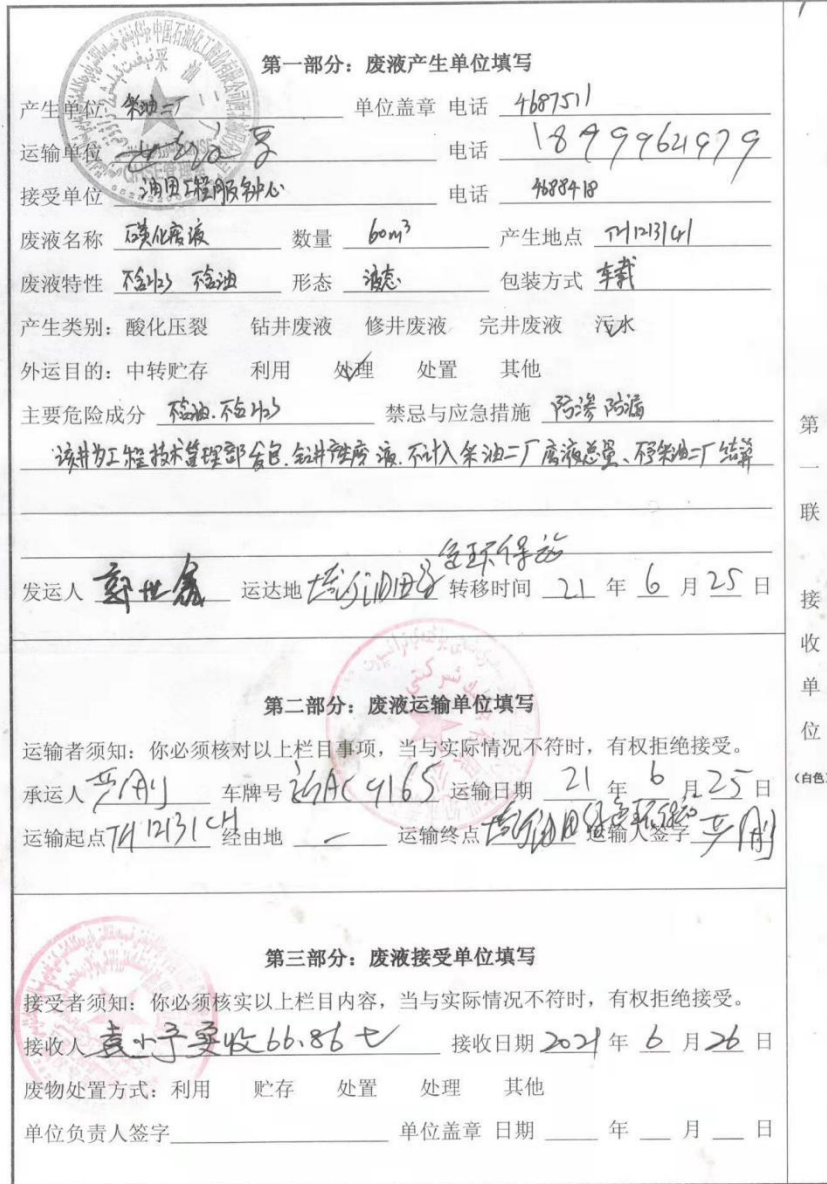 第一部分：废液产生单位填写
产生单位 采油二厂 单位盖章 电话 4687511
运输单位 电话 18999621979
接受单位 油田工程服务中心 电话 4688418
废液名称 磺化废液 数量 60m³ 产生地点 TH12131CH
废液特性 不含H2S 不含油 形态 液态 包装方式 车载
产生类别：酸化压裂 钻井废液 修井废液 完井废液 污水
外运目的：中转贮存 利用 处理 处置 其他
主要危险成分 不含油.不含H2S 禁忌与应急措施 防渗 防漏
该井为工程技术管理部发包.钻井产生废液.不计入采油二厂废液总量、不予采油二厂结算
发运人 郭世鑫 运达地 塔河油田绿色环保站 转移时间 21 年 6 月 25 日
第二部分：废液运输单位填写
运输者须知：你必须核对以上栏目事项，当与实际情况不符时，有权拒绝接受。
承运人 严刚 车牌号 新AC9165 运输日期 21 年 6 月 25 日
运输起点 TH12131CH 经由地 — 运输终点 塔河油田绿色环保站 运输人签字 严刚
第三部分：废液接受单位填写
接受者须知：你必须核实以上栏目内容，当与实际情况不符时，有权拒绝接受。
接收人 袁小予 实收66.86t 接收日期 2021 年 6 月 26 日
废物处置方式：利用 贮存 处置 处理 其他
单位负责人签字 单位盖章 日期 年 月 日
第一联 接收单位
（白色）